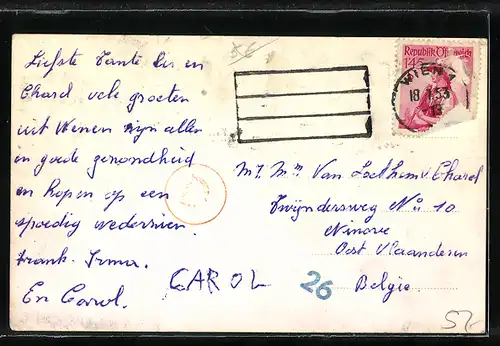 Liefste Tante Lis en
Charel vele groeten
uit Wenen zijn allen
in goede gezondheid
en hopen op een
spoedig wederzien.
Frank. Irma.
En Carol.
CAROL
26
Republik Österreich
WIEN 1
18
53
M. M. Van Charel
N° 10
Ninove
Oost Vlaanderen
Belgie